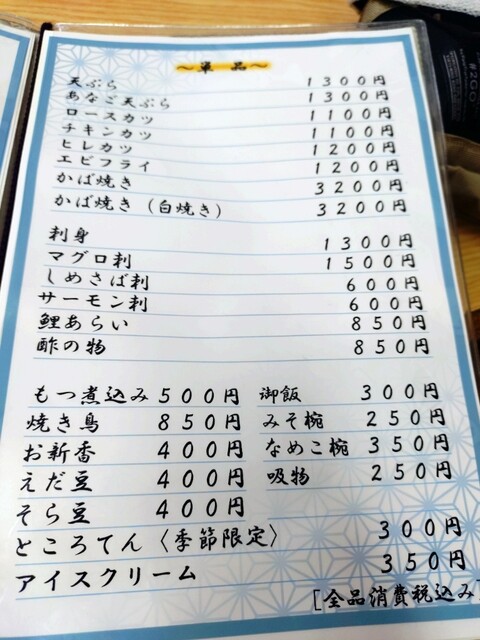 ～単品～
天ぷら 1300円
あなご天ぷら 1300円
ロースカツ 1100円
チキンカツ 1100円
ヒレカツ 1200円
エビフライ 1200円
かば焼き 3200円
かば焼き（白焼き） 3200円
刺身 1300円
マグロ刺 1500円
しめさば刺 600円
サーモン刺 600円
鯉あらい 850円
酢の物 850円
もつ煮込み 500円 御飯 300円
焼き鳥 850円 みそ椀 250円
お新香 400円 なめこ椀 350円
えだ豆 400円 吸物 250円
そら豆 400円
ところてん〈季節限定〉 300円
アイスクリーム 350円
[全品消費税込み]
#2GO